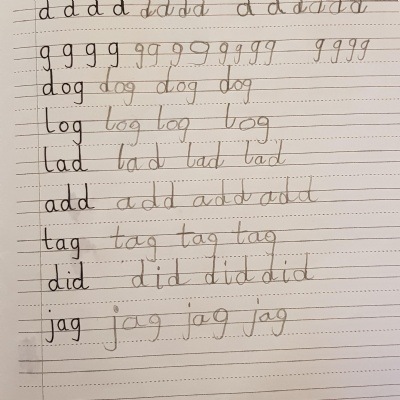 d d d d d d d d d d d d d d
g g g g g g g g g g g g g g g g
dog dog dog dog
log log log log
lad lad lad lad
add add add add
tag tag tag tag
did did did did
jag jag jag jag